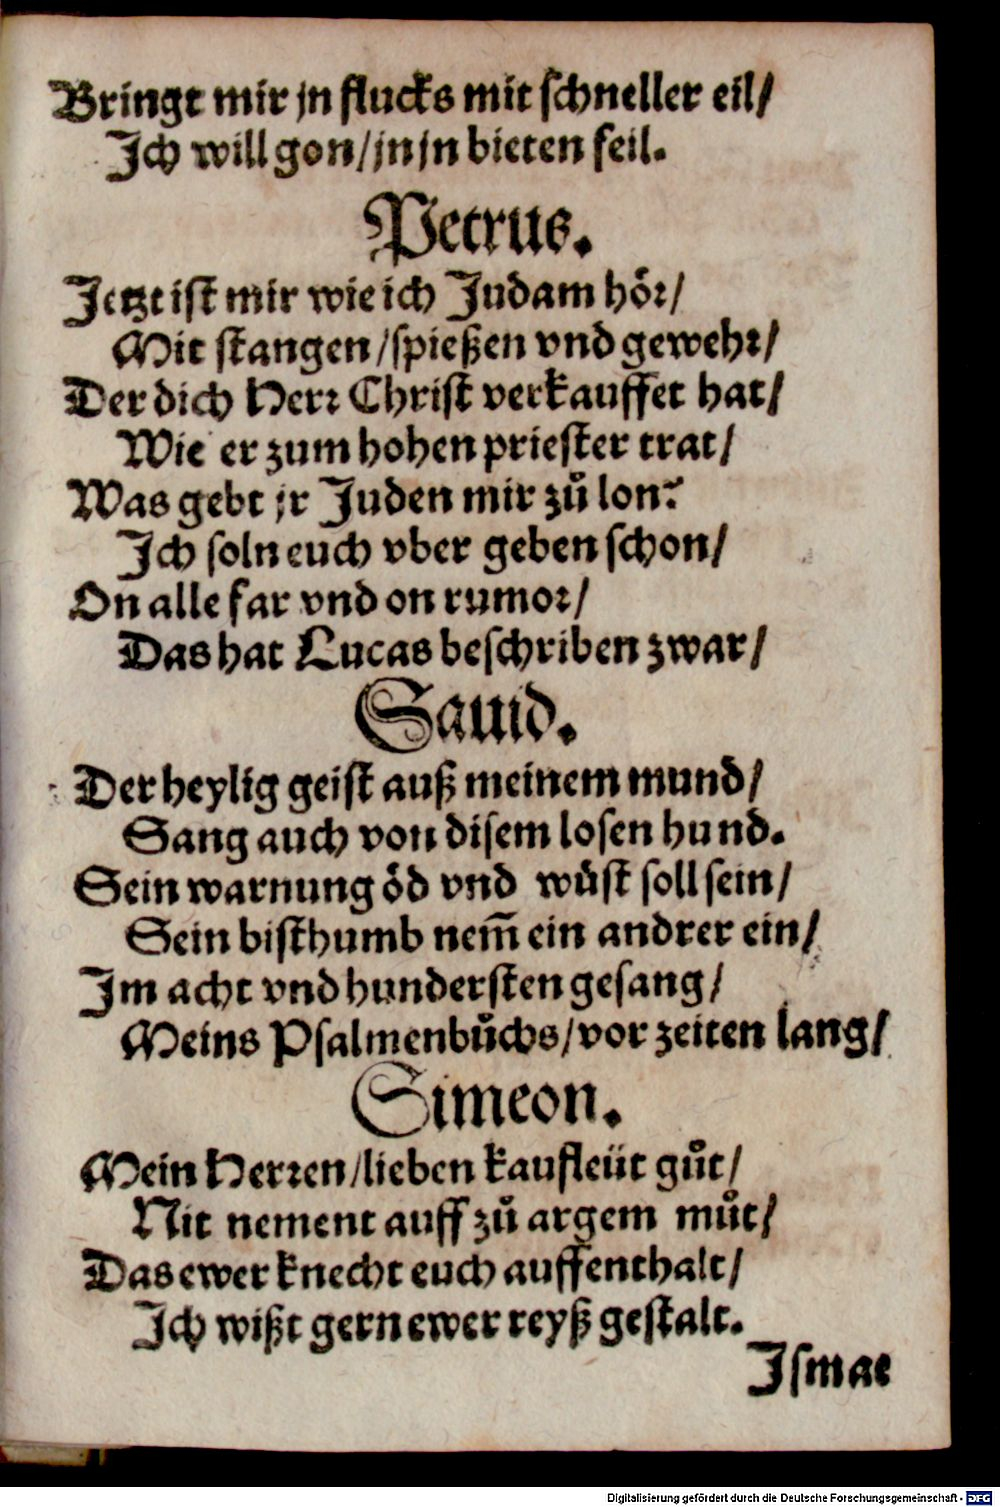 Bringt mir jn flucks mit schneller eil/
Ich will gon/jn jn bieten feil.
Petrus.
Jetzt ist mir wie ich Judam hoͤr/
Mit stangen/spießen vnd gewehr/
Der dich Herr Christ verkauffet hat/
Wie er zum hohen priester trat/
Was gebt jr Juden mir zuͦ lon?
Ich soln euch vber geben schon/
On alle far vnd on rumor/
Das hat Lucas beschriben zwar/
Dauid.
Der heylig geist auß meinem mund/
Sang auch von disem losen hund.
Sein warnung oͤd vnd wuͤst soll sein/
Sein bisthumb nem̃ ein andrer ein/
Im acht vnd hundersten gesang/
Meins Psalmenbuͦchs/vor zeiten lang/
Simeon.
Mein Herren/lieben kaufleüt guͦt/
Nit nement auff zuͦ argem muͦt/
Das ewer knecht euch auffenthalt/
Ich wißt gern ewer reyß gestalt.
Ismae
Digitalisierung gefördert durch die Deutsche Forschungsgemeinschaft - DFG